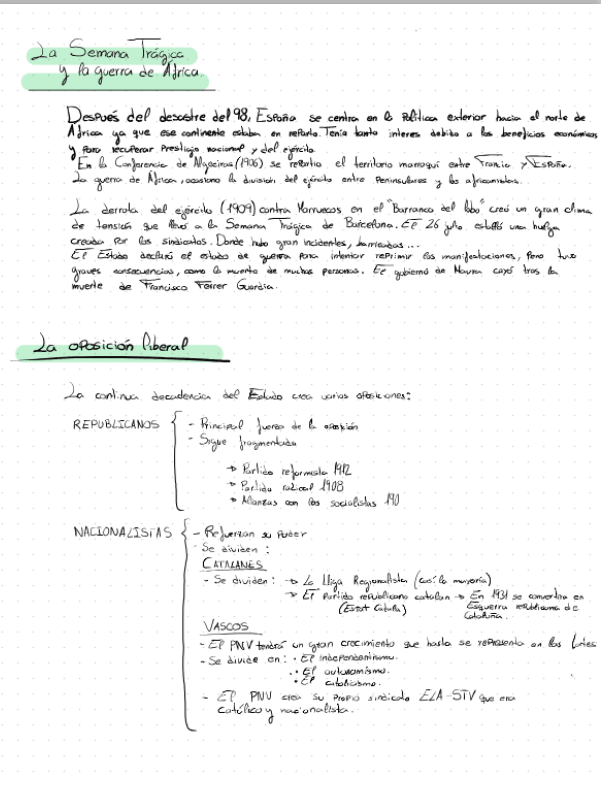 La Semana Trágica
y la guerra de África.
Después del desastre del 98, España se centra en la política exterior hacia el norte de
África ya que ese continente estaba en reparto. Tenía tanto interes debido a los beneficios económicos
y para recuperar prestigio nacional y del ejército.
En la Conferencia de Algeciras (1906) se repartio el territorio marroquí entre Francia y España.
La guerra de África, ocasiono la división del ejército entre Peninsulares y los africanistas.
La derrota del ejército (1909) contra Marruecos en el "Barranco del lobo" creó un gran clima
de tensión que llevó a la Semana Trágica de Barcelona. El 26 julio estalló una huelga
creada por los sindicatos. Donde hubo gran incidentes, barricadas...
El Estado declaró el estado de guerra para intentar reprimir las manifestaciones, pero tuvo
graves consecuencias, como la muerte de muchas personas. El gobierno de Maura cayó tras la
muerte de Francisco Ferrer Guardia.
La oposición liberal
La continua decadencia del Estado crea varias oposiciones:
REPUBLICANOS
- Principal fuerza de la oposición
- Sigue fragmentada
→ Partido reformista 1912
→ Partido radical 1908
→ Alianzas con los socialistas
NACIONALISTAS
- Refuerzan su poder
- Se dividen :
CATALANES
- Se dividen : → La lliga Regionalista (casi la mayoría)
→ El Partido republicano catalan → En 1931 se convertira en
(Estat Català) Esquerra republicana de
Cataluña.
VASCOS
- El PNV tendrá un gran crecimiento que hasta se representa en las Cortes
- Se divide en : • El independentismo.
• El autonomismo.
• El catolicismo.
- El PNV crea su propio sindicato ELA-STV que era
católico y nacionalista.